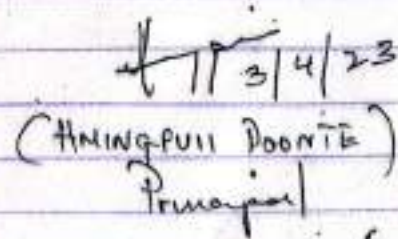 3/4/23
(HMINGPUII DOONTE)
Principal